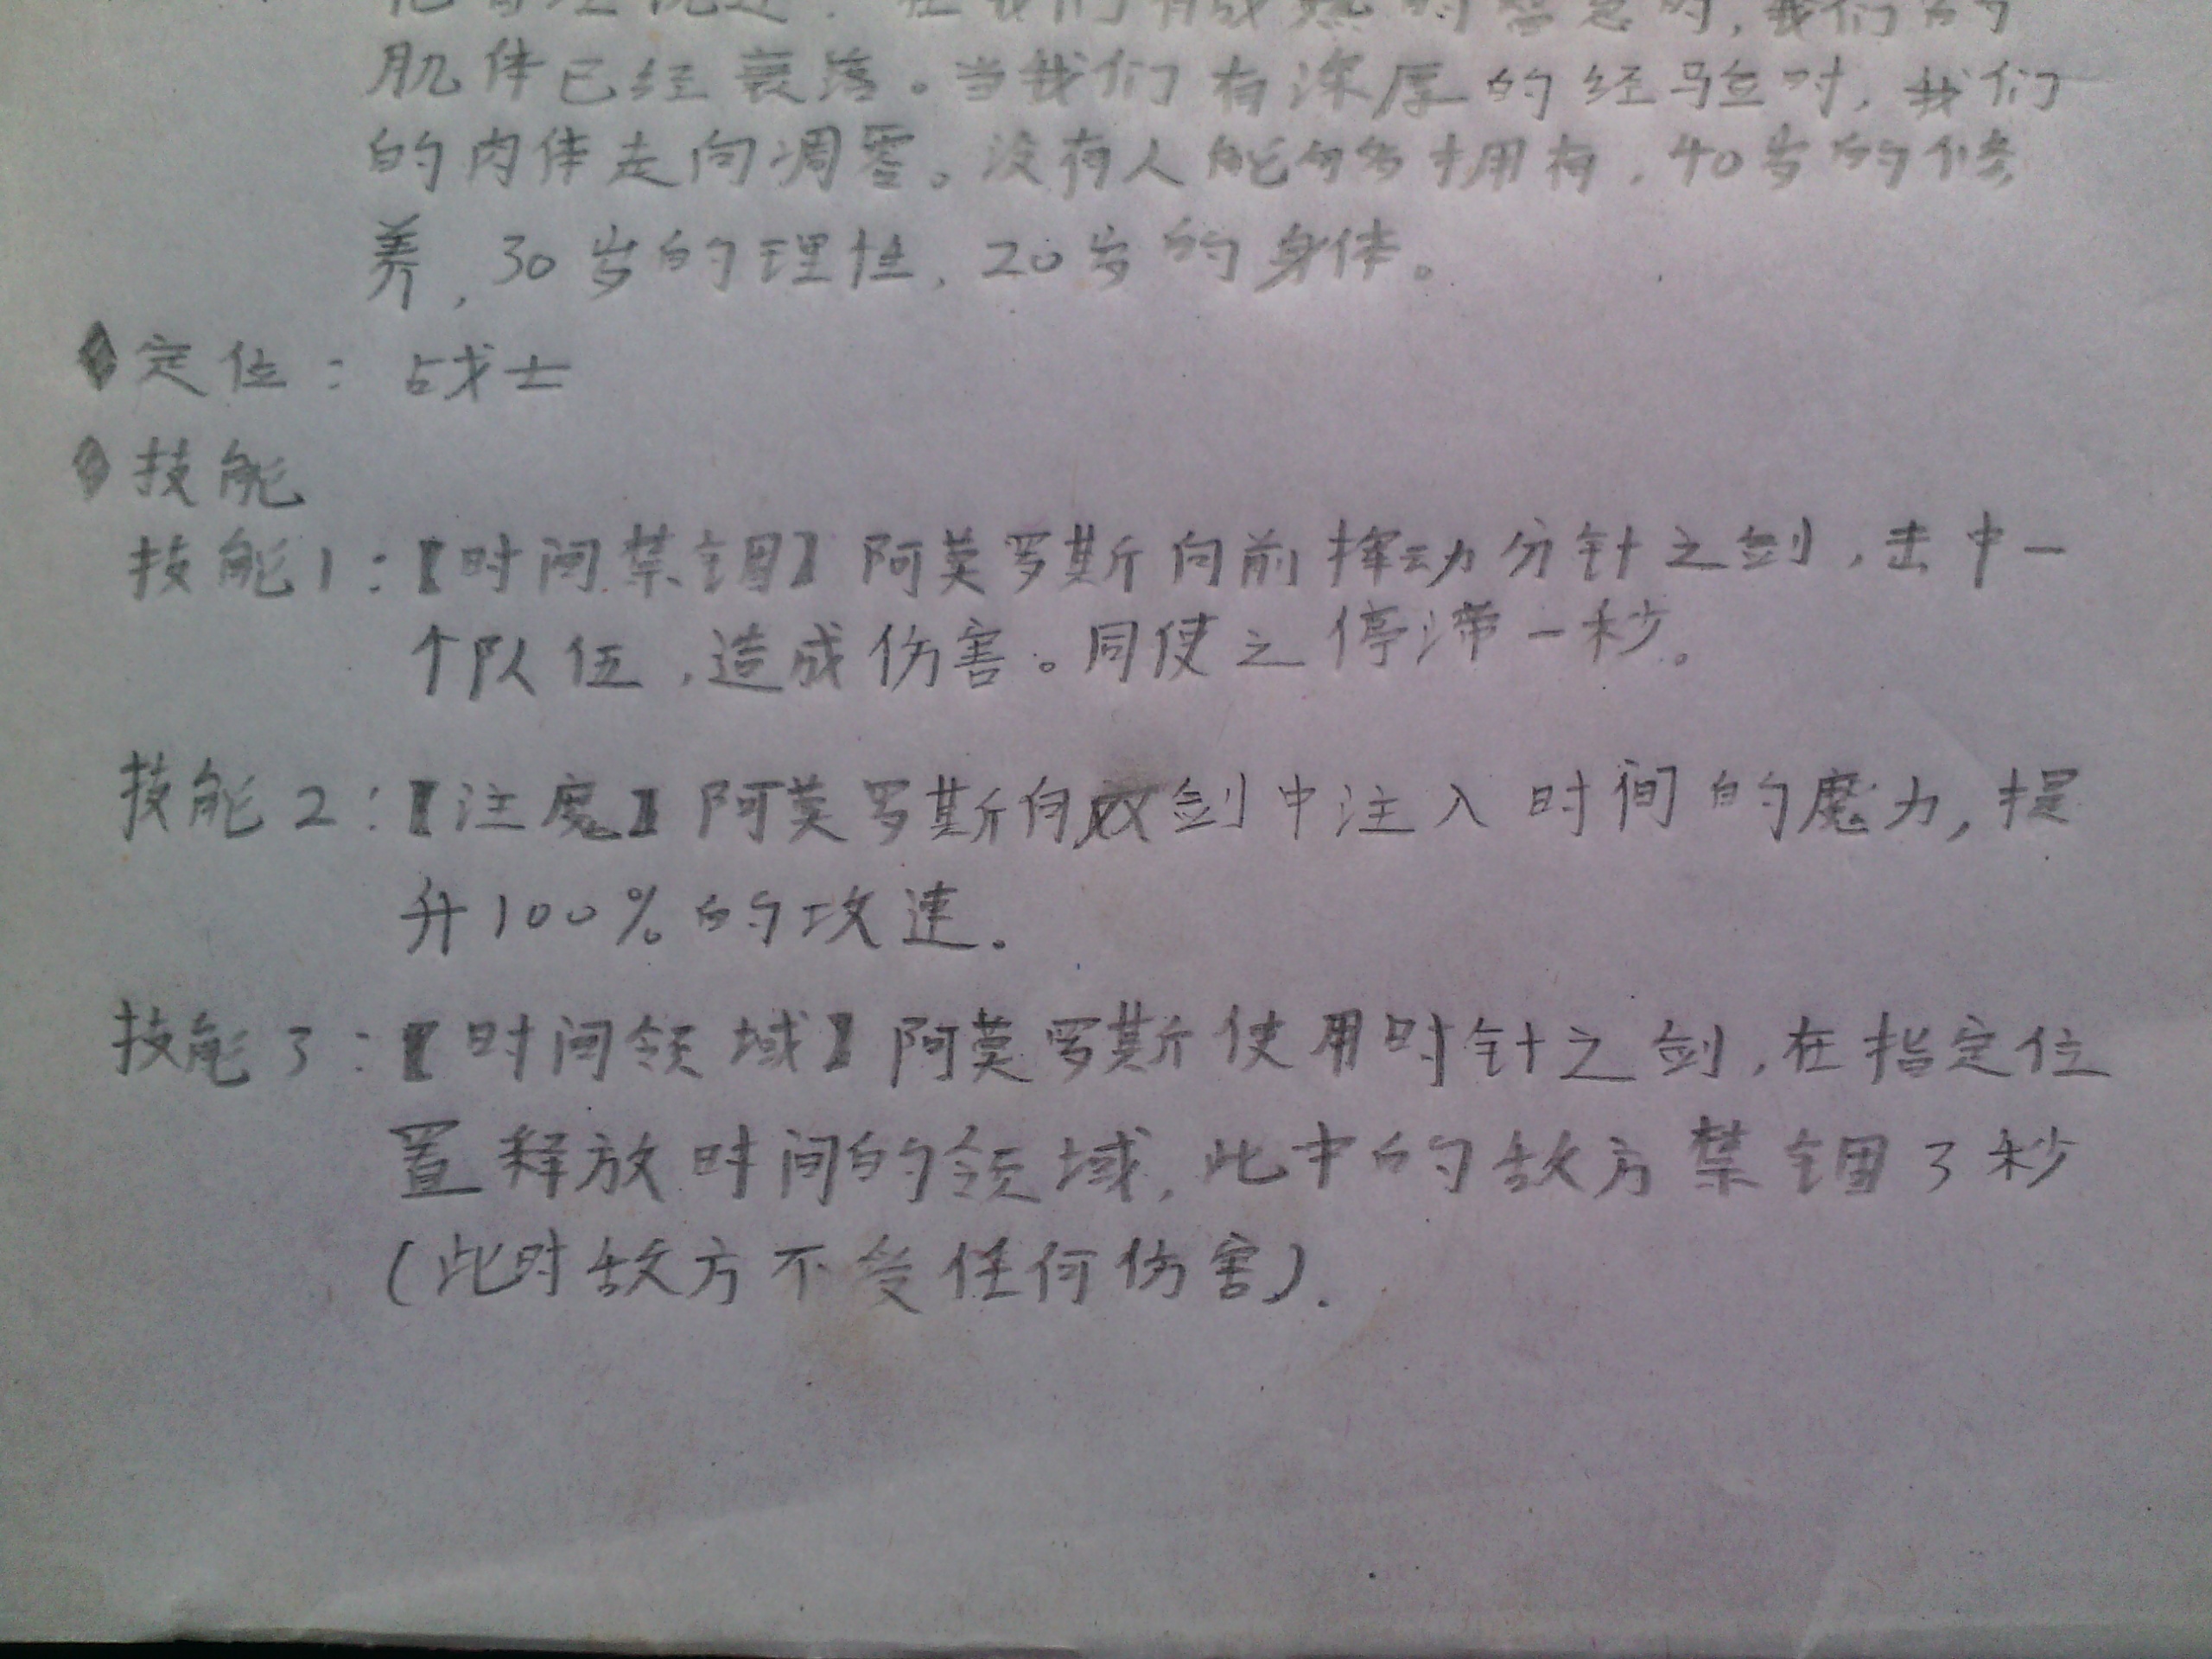 在我们有成熟的智慧时,我们的
肌体已经衰落。当我们有深厚的经验时,我们
的肉体走向凋零。没有人能够拥有,40岁的修
养,30岁的理性,20岁的身体。
◆定位:战士
◆技能
技能1:【时间禁锢】阿莫罗斯向前挥动分针之剑,击中一
个队伍,造成伤害。同使之停滞一秒。
技能2:【注魔】阿莫罗斯向双剑中注入时间的魔力,提
升100%的攻速.
技能3:【时间领域】阿莫罗斯使用时针之剑,在指定位
置释放时间的领域,此中的敌方禁锢3秒
(此时敌方不受任何伤害).